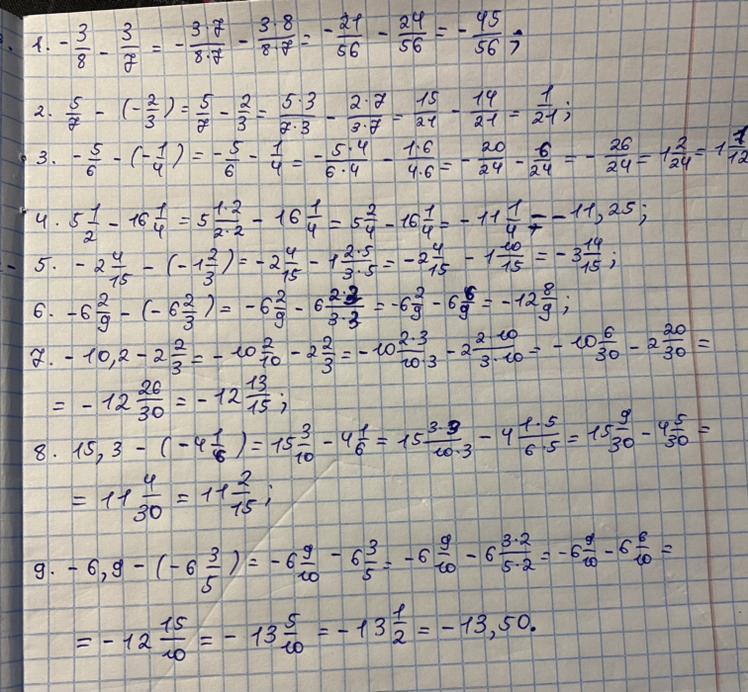 1. -3/8 - 3/7 = -3·7/8·7 - 3·8/8·7 = -21/56 - 24/56 = -45/56;
2. 5/7 - (-2/3) = 5/7 - 2/3 = 5·3/7·3 - 2·7/3·7 = 15/21 - 14/21 = 1/21;
3. -5/6 - (-1/4) = -5/6 - 1/4 = -5·4/6·4 - 1·6/4·6 = -20/24 - 6/24 = -26/24 = 1 2/24 = 1 1/12
4. 5 1/2 - 16 1/4 = 5 1·2/2·2 - 16 1/4 = 5 2/4 - 16 1/4 = -11 1/4 = -11,25;
5. -2 4/15 - (-1 2/3) = -2 4/15 - 1 2·5/3·5 = -2 4/15 - 1 10/15 = -3 14/15;
6. -6 2/9 - (-6 2/3) = -6 2/9 - 6 2·3/3·3 = -6 2/9 - 6 6/9 = -12 8/9;
7. -10,2 - 2 2/3 = -10 2/10 - 2 2/3 = -10 2·3/10·3 - 2 2·10/3·10 = -10 6/30 - 2 20/30 =
= -12 26/30 = -12 13/15;
8. 15,3 - (-4 1/6) = 15 3/10 - 4 1/6 = 15 3·3/10·3 - 4 1·5/6·5 = 15 9/30 - 4 5/30 =
= 11 4/30 = 11 2/15;
9. -6,9 - (-6 3/5) = -6 9/10 - 6 3/5 = -6 9/10 - 6 3·2/5·2 = -6 9/10 - 6 6/10 =
= -12 15/10 = -13 5/10 = -13 1/2 = -13,50.